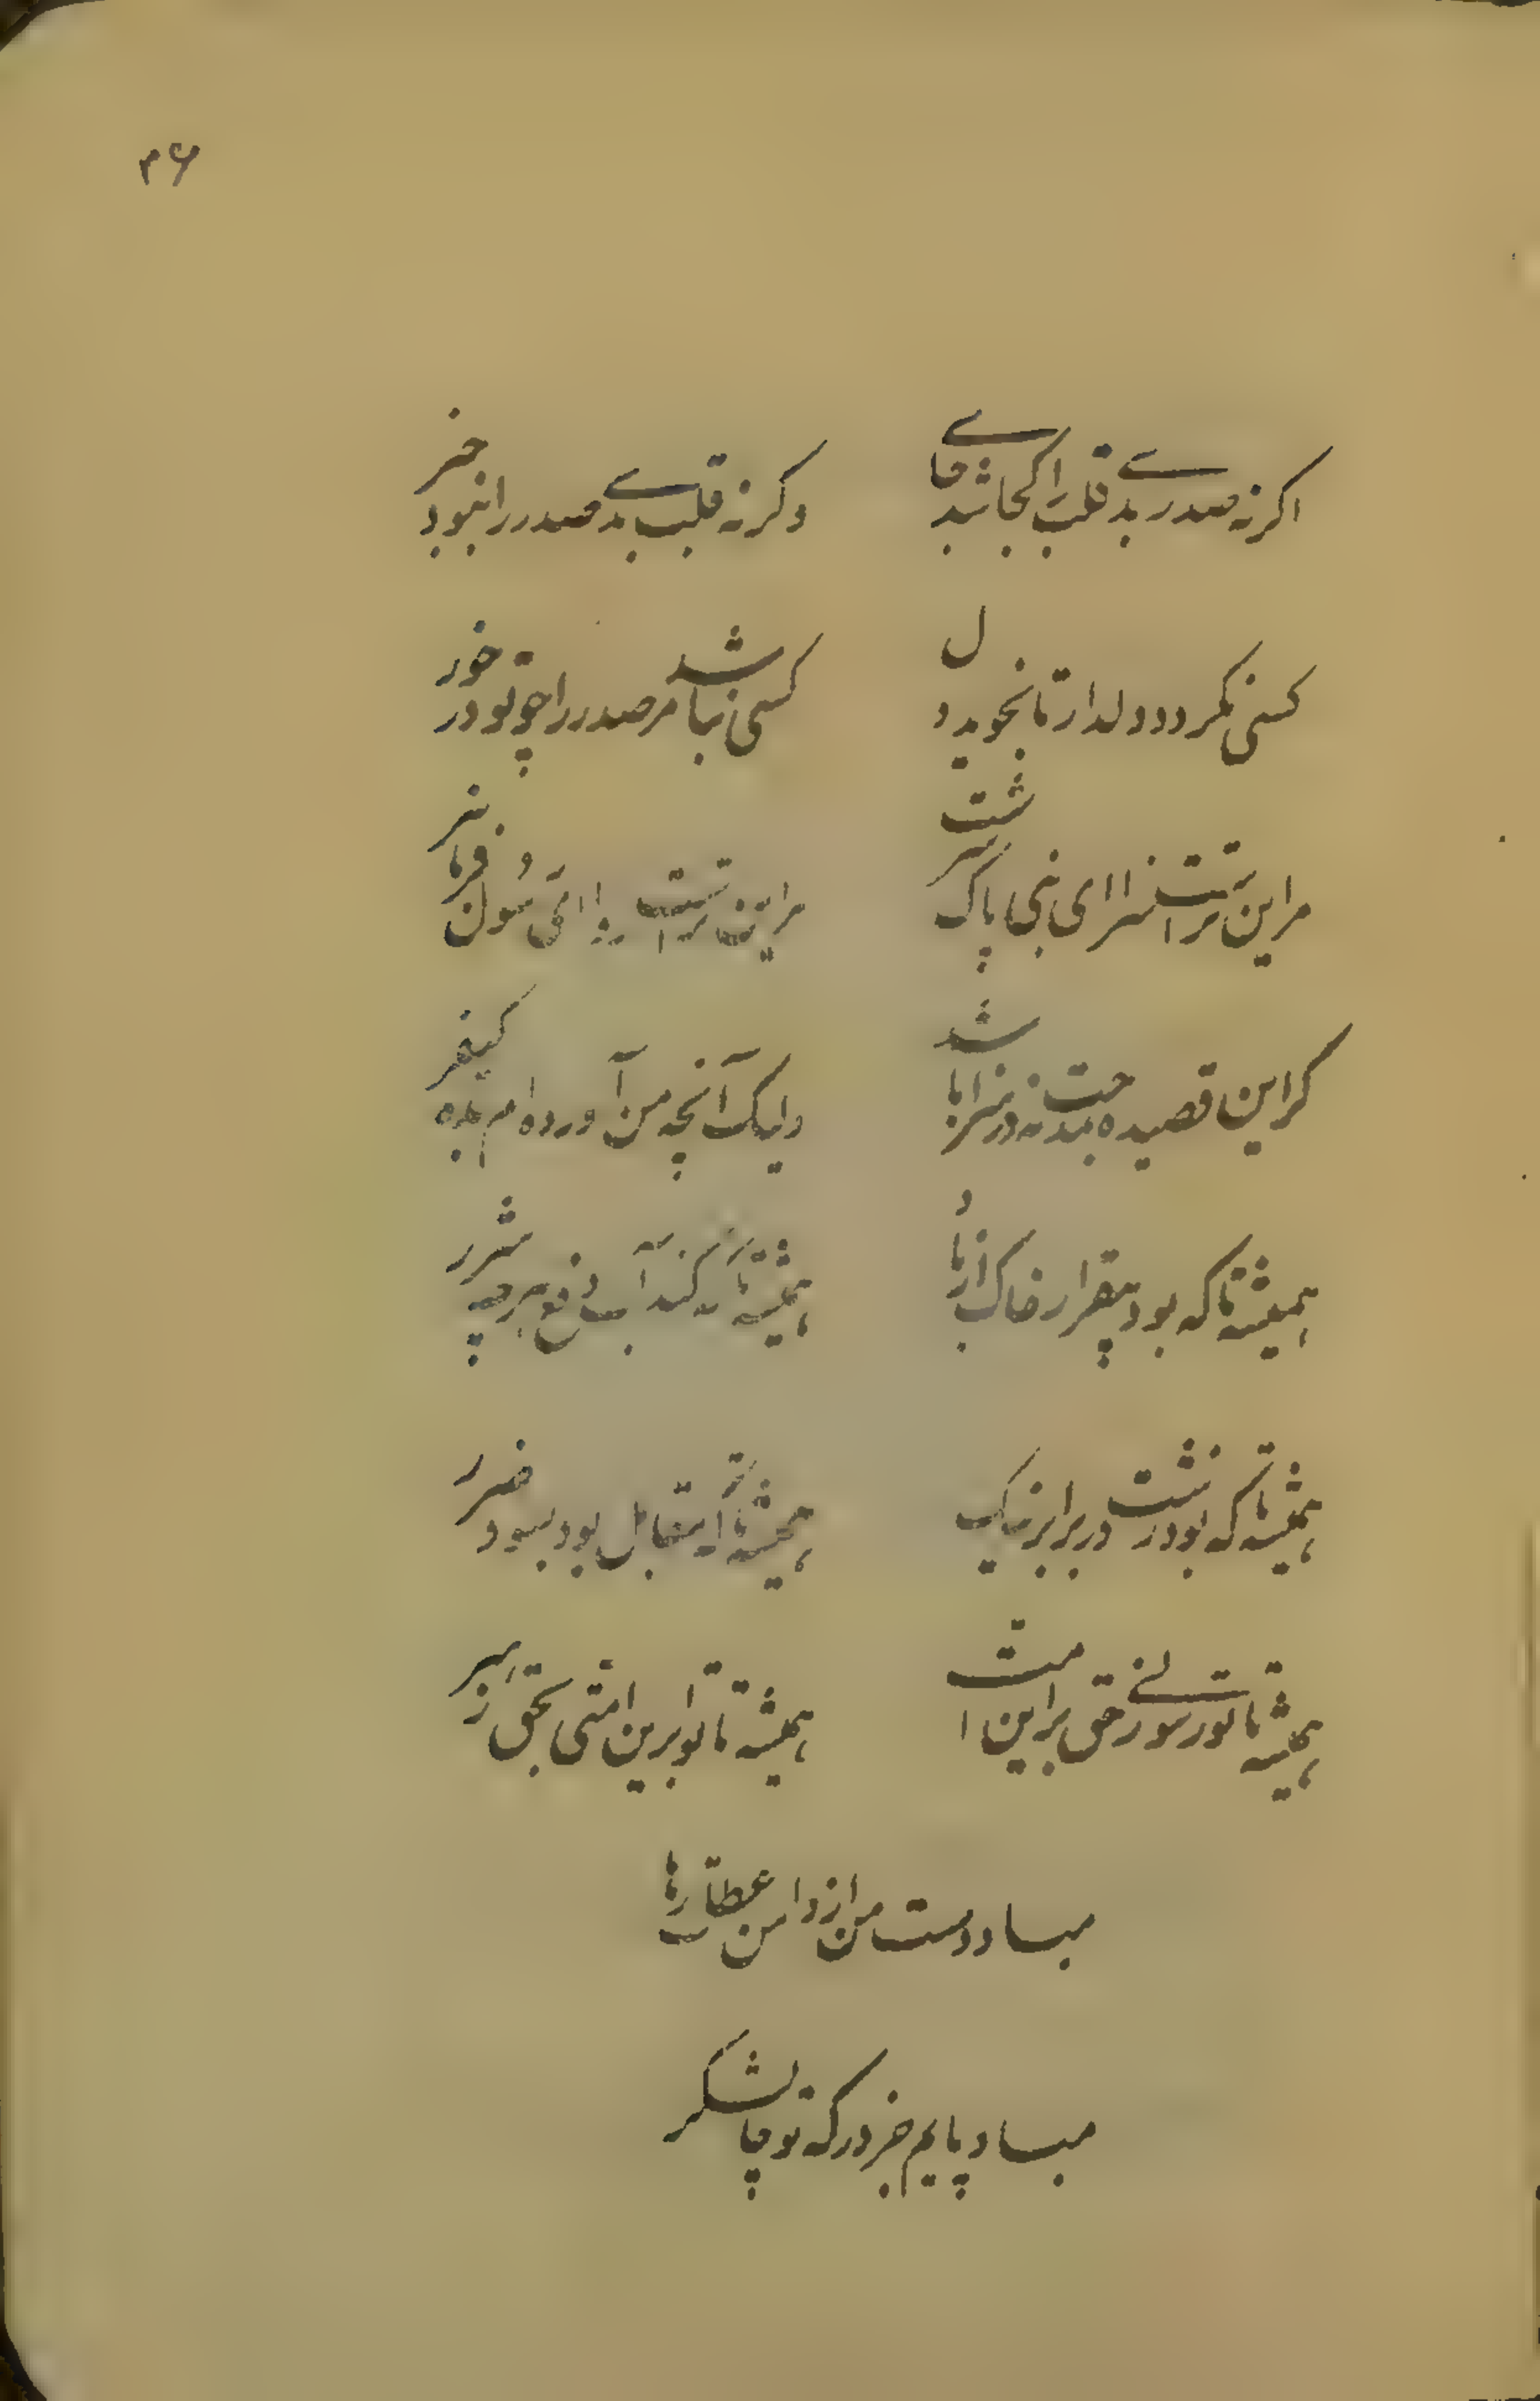 ۳۶
اگر نه صدر بدے قلب را کجا شد جاے
وگر نه قلب بدے صدر را نبود خبر
کسی نکرد دو دلدار تا نجوید دل
کسی نباشد مر صدر را چو تو در خور
مر این تراست سزا ای نبی پاک سرشت
مر این تراست روا ای رسول فرمانبر
گر این قصیده بمدحت نه در سزا باشد
ولیک آنچه من آورده ام بده کیفر
همیشه تا که بود بیقرار خاک از باد
همیشه تا که کند آب دفع هر چه شرر
همیشه تا که بود زشت در برابر نیک
همیشه تا که مقابل بود بسود ضرر
همیشه تا تو رسولی ز حق بر این امت
همیشه تا تو ابرین امتی بحق رهبر
مباد دست من از دامن عطات رها
مباد پایم جز درگه تو جا لشکر